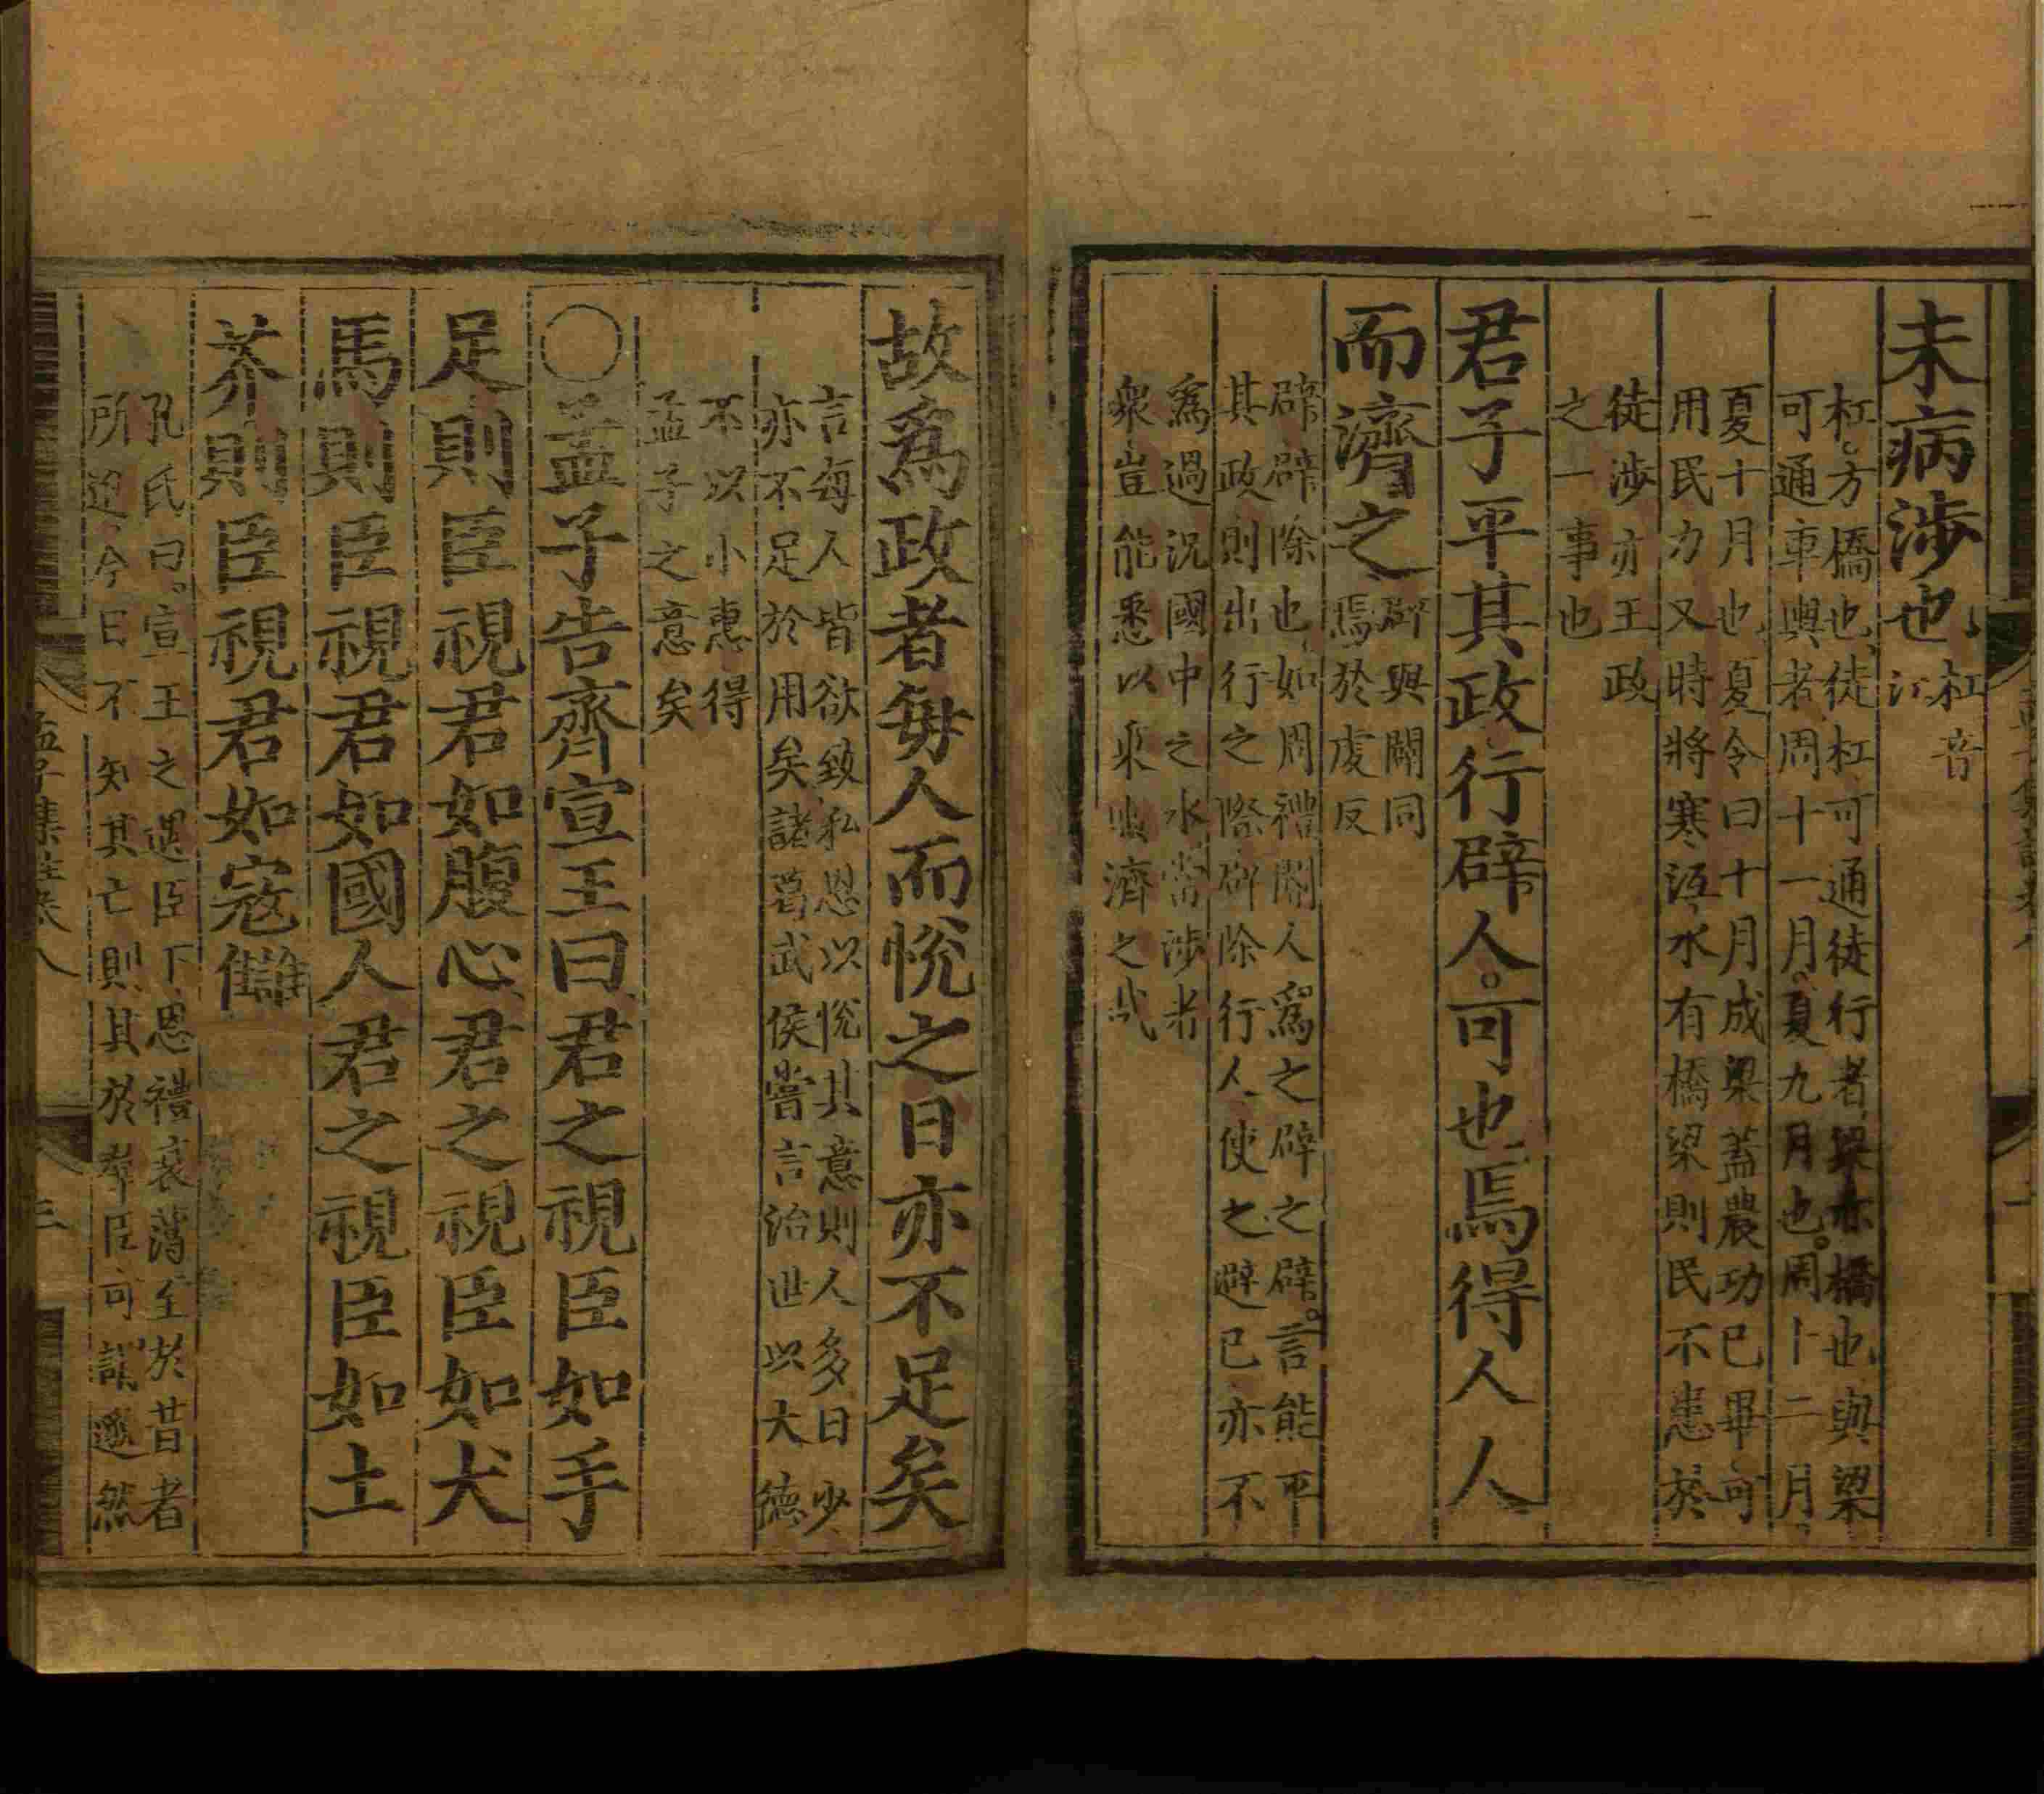 未病涉也杠音
江
杠方橋也徒杠可通徒行者梁亦橋也與梁
可通車輿者周十一月夏九月也周十二月
夏十月也夏令曰十月成梁蓋農功已畢可
用民力又時將寒沍水有橋梁則民不患於
徒涉亦王政
之一事也
君子平其政行辟人可也焉得人人
而濟之辟與闢同
焉於虔反
辟辟除也如周禮閽人爲之辟之辟言能平
其政則出行之際辟除行人使之避已亦不
爲過況國中之水當涉者
衆豈能悉以乘輿濟之哉
故爲政者每人而悅之日亦不足矣
言每人皆欲致私恩以悅其意則人多日少
亦不足於用矣諸葛武侯嘗言治世以大德
不以小惠得
孟子之意矣
〇孟子告齊宣王曰君之視臣如手
足則臣視君如腹心君之視臣如犬
馬則臣視君如國人君之視臣如土
芥則臣視君如寇讎
孔氏曰宣王之遇臣下恩禮衰薄至於昔者
所進今日不知其亡則其於羣臣可謂邈然
孟子集註卷八
三